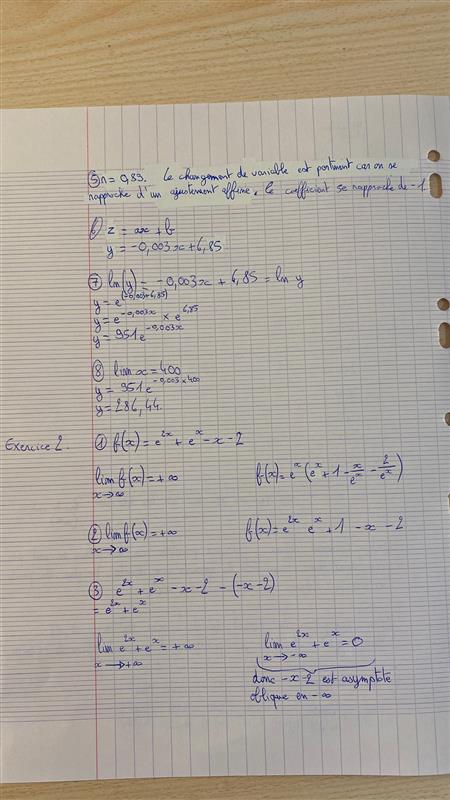 ⑤ r = 0,89. Le changement de variable est pertinent car on se
rapproche d'un ajustement affine, le coefficient se rapproche de -1.
6) z = ax + b
y = -0,003x + 6,85
⑦ ln(y) = -0,003x + 6,85 = ln y
y = e^(-0,003+6,85)
y = e^(-0,003x) × e^(6,85)
y = 951e^(-0,003x)
⑧ lim x = 400
y = 951e^(-0,003×400)
y = 286,44.
Exercice 2. ① f(x) = e^(2x) + e^x - x - 2
lim f(x) = +∞ f(x) = e^x (e^x + 1 - x/e^x - 2/e^x)
x→∞
② lim f(x) = +∞ f(x) = e^(2x) e^x + 1 - x - 2
x→∞
③ e^(2x) + e^x - x - 2 - (-x - 2)
= e^(2x) + e^x
lim e^(2x) + e^x = +∞ lim e^(2x) + e^x = 0
x→+∞ x→-∞
donc -x-2 est asymptote
oblique en -∞